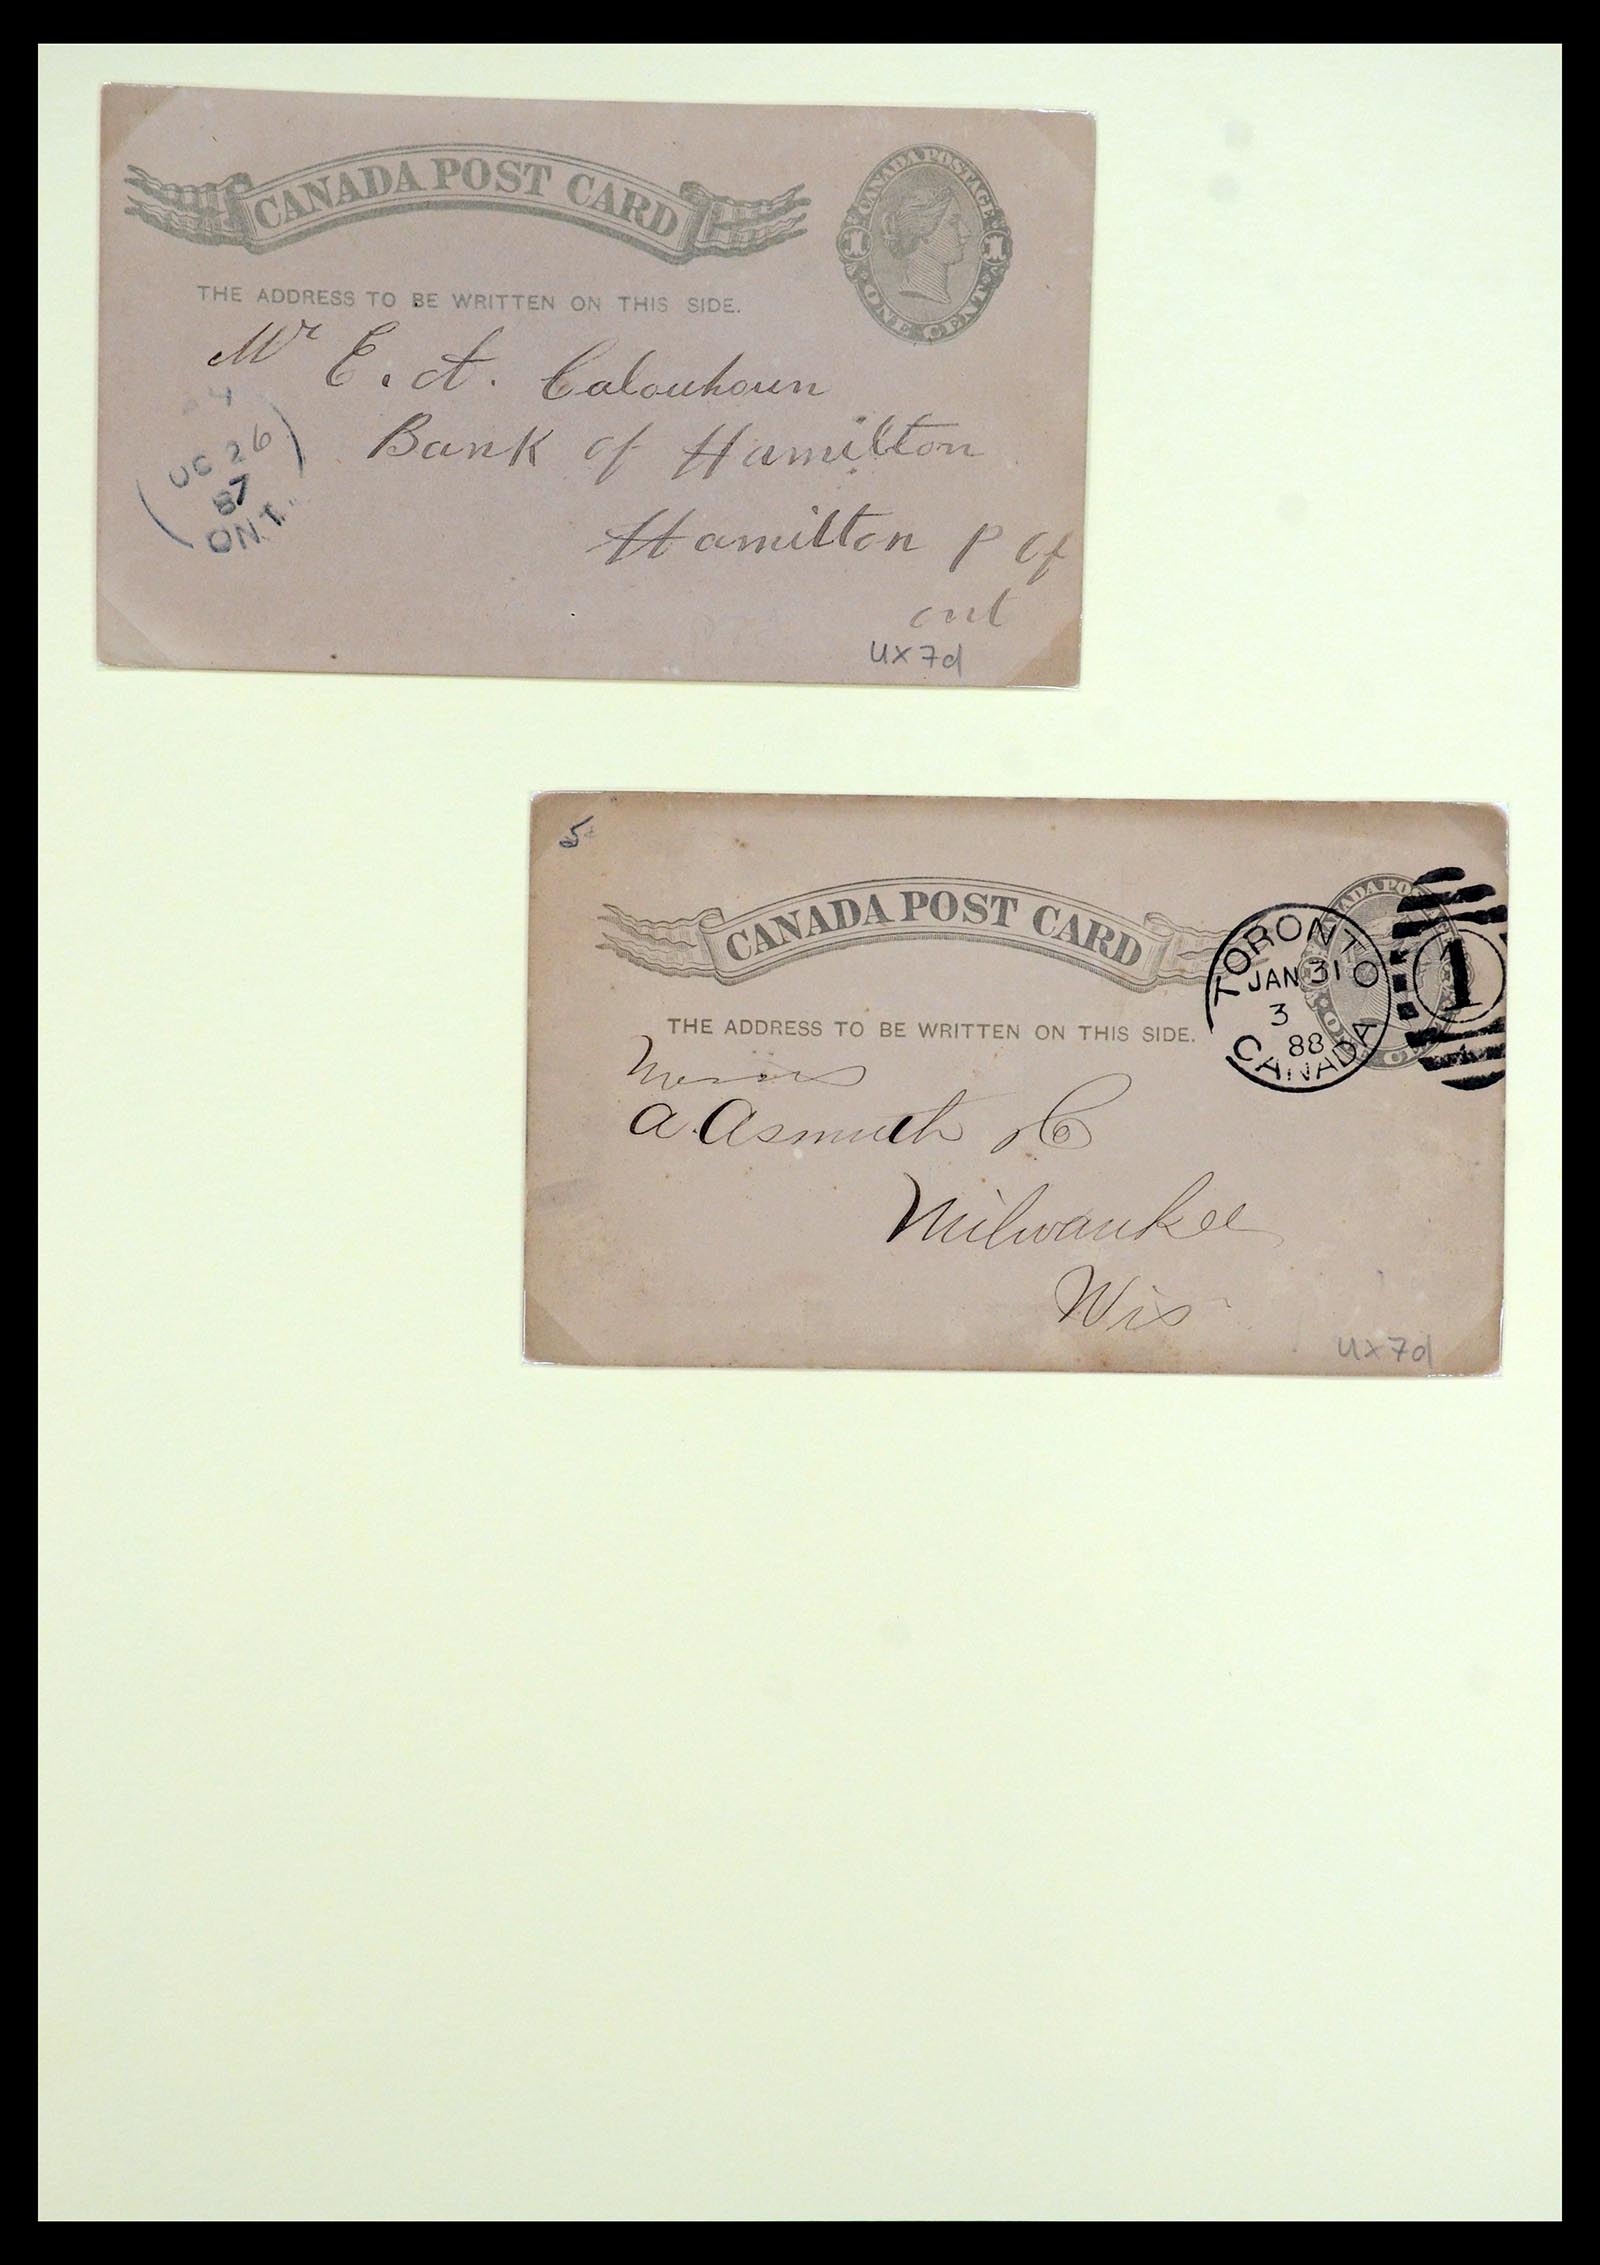 CANADA POST CARD
CANADA POSTAGE
1 1
ONE CENT
THE ADDRESS TO BE WRITTEN ON THIS SIDE.
Mr E. A. Calouhoun
Bank of Hamilton
Hamilton P Of
ont
OC 26
87
ONT.
UX7d
5¢
CANADA POST CARD
TORONTO
JAN 31
3
88
CANADA
1
THE ADDRESS TO BE WRITTEN ON THIS SIDE.
Messrs
A. Asmuth & Co
Milwaukee
Wis
UX7d